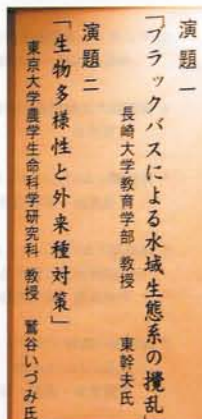 演題一
「ブラックバスによる水域生態系の攪乱
長崎大学教育学部 教授 東幹夫氏
演題二
「生物多様性と外来種対策」
東京大学農学生命科学研究科 教授 鷲谷いづみ氏